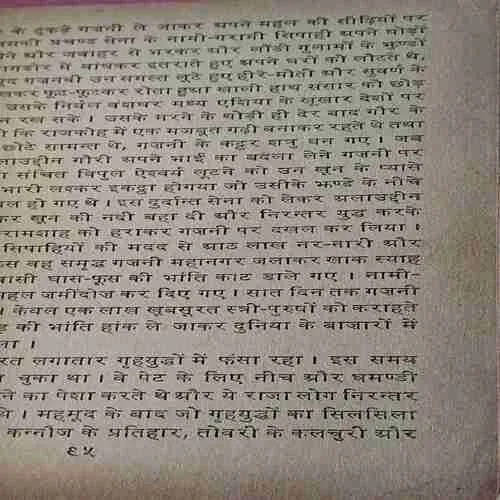 के टुकड़े गज़नी ले जाकर अपने महल की सीढ़ियों पर
प्रचण्ड सेना के नामी-गरामी सिपाही अपने घोड़ों
और जवाहर से भरकर और लौंडी गुलामों के झुण्डों
बागडोर में बांधकर इतराते हुए अपने घरों को लौटते थे,
गजनवी उन समस्त लूटे हुए हीरे-मोती और सुवर्ण के
फूट-फूटकर रोता हुआ खाली हाथ संसार को छोड़
उसके निर्बल वंशधर मध्य एशिया के खूंखार देशों पर
न रख सके । उसके मरने के थोड़ी ही देर बाद गौर के
कि राजकोह में एक मजबूत गढ़ी बनाकर रहते थे तथा
छोटे सामन्त थे, गज़नी के कट्टर शत्रु बन गए । जब
गौरी अपने भाई का बदला लेने गज़नी पर
संचित विपुल ऐश्वर्य लूटने को उन खून के प्यासे
भारी लश्कर इकट्ठा होगया जो उसीके झण्डे के नीचे
हो गए थे । इस दुर्दान्त सेना को लेकर अलाउद्दीन
खून की नदी बहा दी और निरन्तर युद्ध करके
को हराकर गज़नी पर दखल कर लिया ।
सिपाहियों की मदद से आठ लाख नर-नारी और
वह समृद्ध गज़नी महानगर जलाकर खाक स्याह
घास-फूस की भांति काट डाले गए । नामी-
महल जमींदोज़ कर दिए गए । सात दिन तक गज़नी
। केवल एक लाख खूबसूरत स्त्री-पुरुषों को कराहते
की भांति हांक ले जाकर दुनिया के बाज़ारों में
।
लगातार गृहयुद्धों में फंसा रहा । इस समय
चुका था । वे पेट के लिए नीच और घमण्डी
का पेशा करते थे और ये राजा लोग निरन्तर
थे । महमूद के बाद जो गृहयुद्धों का सिलसिला
कन्नौज के प्रतिहार, तोवरी के कलचुरी और
६५